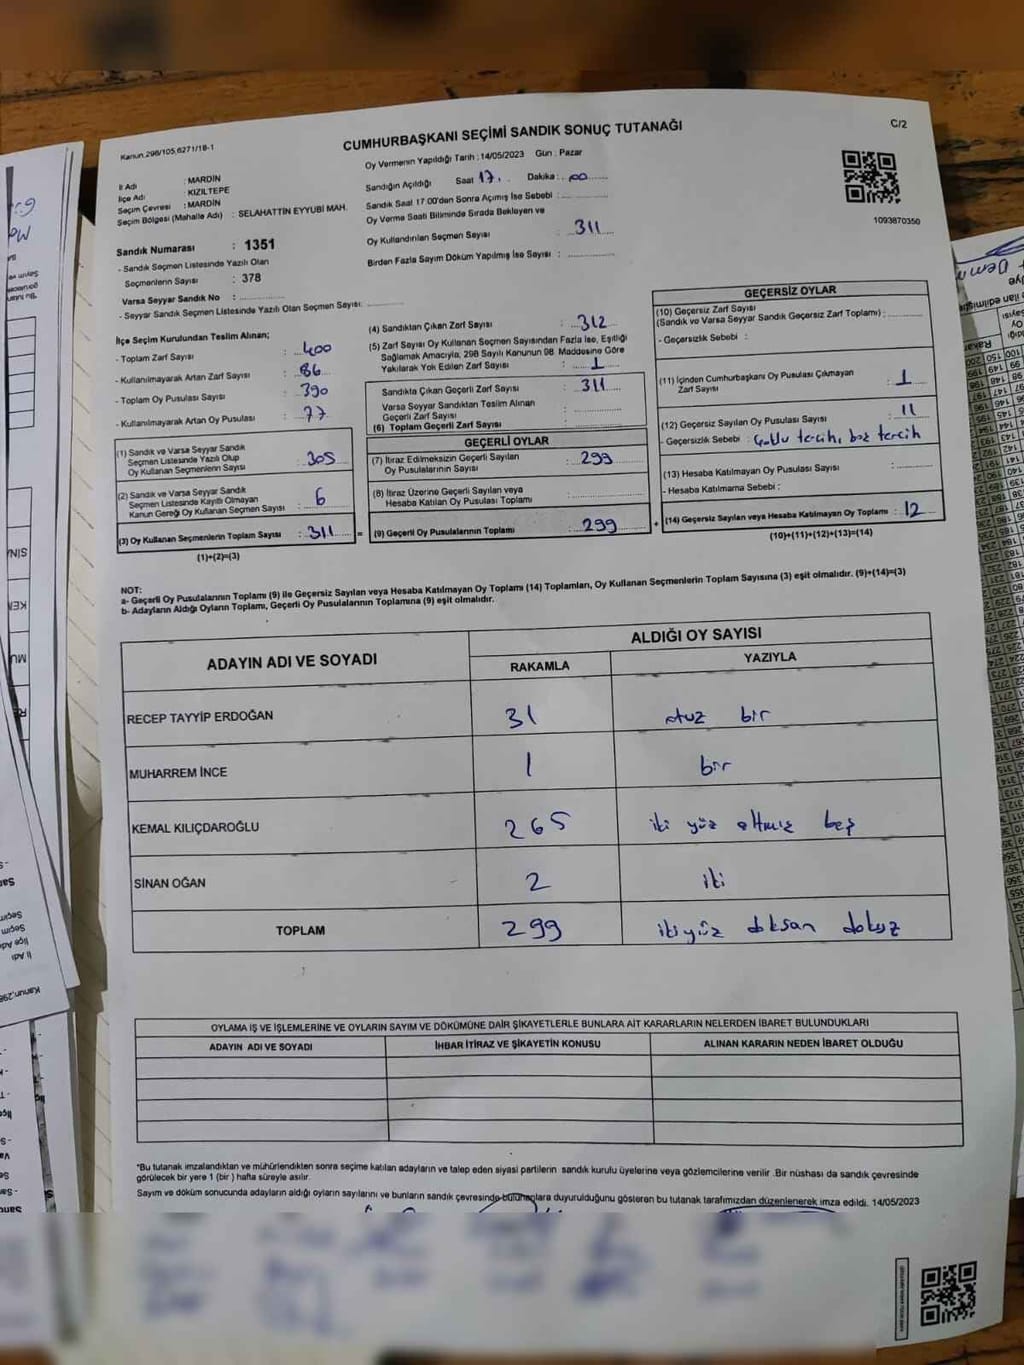 C/2
Kanun,298/105,6271/18-1
CUMHURBAŞKANI SEÇİMİ SANDIK SONUÇ TUTANAĞI
Oy Vermenin Yapıldığı Tarih : 14/05/2023 Gün : Pazar
İl Adı : MARDİN
İlçe Adı : KIZILTEPE
Seçim Çevresi : MARDİN
Seçim Bölgesi (Mahalle Adı) : SELAHATTİN EYYUBİ MAH.
Sandık Numarası : 1351
- Sandık Seçmen Listesinde Yazılı Olan
Seçmenlerin Sayısı : 378
Varsa Seyyar Sandık No : ..............
- Seyyar Sandık Seçmen Listesinde Yazılı Olan Seçmen Sayısı: ............
Sandığın Açıldığı Saat 17. Dakika : 00
Sandık Saat 17 00'den Sonra Açımış İse Sebebi : ..............
Oy Verme Saati Bitiminde Sırada Bekleyen ve
Oy Kullandırılan Seçmen Sayısı : 311
Birden Fazla Sayım Döküm Yapılmış İse Sayısı : ..............
1093870350
İlçe Seçim Kurulundan Teslim Alınan;
- Toplam Zarf Sayısı : 400
- Kullanılmayarak Artan Zarf Sayısı : 86
- Toplam Oy Pusulası Sayısı : 390
- Kullanılmayarak Artan Oy Pusulası : 77
(1) Sandık ve Varsa Seyyar Sandık
Seçmen Listesinde Yazılı Olup
Oy Kullanan Seçmenlerin Sayısı : 305
(2) Sandık ve Varsa Seyyar Sandık
Seçmen Listesinde Kayıtlı Olmayan
Kanun Gereği Oy Kullanan Seçmen Sayısı : 6
(3) Oy Kullanan Seçmenlerin Toplam Sayısı : 311
(1)+(2)=(3)
(4) Sandıktan Çıkan Zarf Sayısı : 312
(5) Zarf Sayısı Oy Kullanan Seçmen Sayısından Fazla İse, Eşitliği
Sağlamak Amacıyla, 298 Sayılı Kanunun 98. Maddesine Göre
Yakılarak Yok Edilen Zarf Sayısı : 1
Sandıkta Çıkan Geçerli Zarf Sayısı : 311
Varsa Seyyar Sandıktan Teslim Alınan
Geçerli Zarf Sayısı : ..............
(6) Toplam Geçerli Zarf Sayısı : ..............
GEÇERLİ OYLAR
(7) İtiraz Edilmeksizin Geçerli Sayılan
Oy Pusulalarının Sayısı : 299
(8) İtiraz Üzerine Geçerli Sayılan veya
Hesaba Katılan Oy Pusulası Toplamı : ..............
(9) Geçerli Oy Pusulalarının Toplamı : 299
GEÇERSİZ OYLAR
(10) Geçersiz Zarf Sayısı
(Sandık ve Varsa Seyyar Sandık Geçersiz Zarf Toplamı) : ..........
- Geçersizlik Sebebi :
(11) İçinden Cumhurbaşkanı Oy Pusulası Çıkmayan
Zarf Sayısı : 1
(12) Geçersiz Sayılan Oy Pusulası Sayısı : 11
- Geçersizlik Sebebi : Çoklu tercih, boş tercih
(13) Hesaba Katılmayan Oy Pusulası Sayısı : ..........
- Hesaba Katılmama Sebebi :
(14) Geçersiz Sayılan veya Hesaba Katılmayan Oy Toplamı : 12
(10)+(11)+(12)+(13)=(14)
NOT:
a- Geçerli Oy Pusulalarının Toplamı (9) ile Geçersiz Sayılan veya Hesaba Katılmayan Oy Toplamı (14) Toplamları, Oy Kullanan Seçmenlerin Toplam Sayısına (3) eşit olmalıdır. (9)+(14)=(3)
b- Adayların Aldığı Oyların Toplamı, Geçerli Oy Pusulalarının Toplamına (9) eşit olmalıdır.
ADAYIN ADI VE SOYADI ALDIĞI OY SAYISI
RAKAMLA YAZIYLA
RECEP TAYYİP ERDOĞAN 31 otuz bir
MUHARREM İNCE 1 bir
KEMAL KILIÇDAROĞLU 265 iki yüz altmış beş
SİNAN OĞAN 2 iki
TOPLAM 299 iki yüz doksan dokuz
OYLAMA İŞ VE İŞLEMLERİNE VE OYLARIN SAYIM VE DÖKÜMÜNE DAİR ŞİKAYETLERLE BUNLARA AİT KARARLARIN NELERDEN İBARET BULUNDUKLARI
ADAYIN ADI VE SOYADI İHBAR İTİRAZ VE ŞİKAYETİN KONUSU ALINAN KARARIN NEDEN İBARET OLDUĞU
*Bu tutanak imzalandıktan ve mühürlendikten sonra seçime katılan adayların ve talep eden siyasi partilerin sandık kurulu üyelerine veya gözlemcilerine verilir .Bir nüshası da sandık çevresinde
görülecek bir yere 1 (bir ) hafta süreyle asılır.
Sayım ve döküm sonucunda adayların aldığı oyların sayılarını ve bunların sandık çevresinde bulunanlara duyurulduğunu gösteren bu tutanak tarafımızdan düzenlenerek imza edildi. 14/05/2023